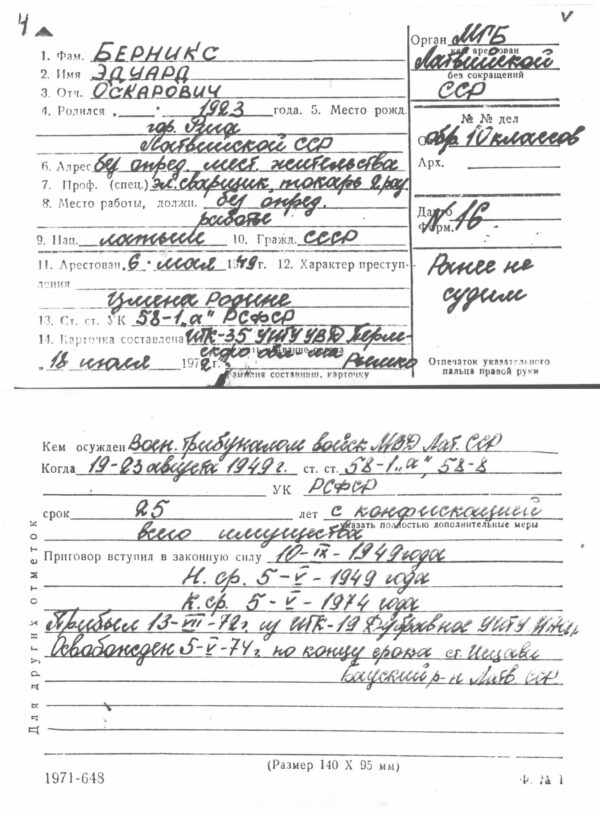 4
v
1. Фам. БЕРНИКС
2. Имя ЭДУАРД
3. Отч. ОСКАРОВИЧ
4. Родился 1923 года. 5. Место рожд.
гор. Рига
Латвийской ССР
6. Адрес без опред. мест. жительства
7. Проф. (спец.) эл. сварщик, токарь 2 раз.
8. Место работы, должн. без опред.
работы
9. Нац. латыш 10. Гражд. СССР
11. Арестован 6 мая 1949 г. 12. Характер преступ-
ления
Измена Родине
13. Ст. ст. УК 58-1 „а" РСФСР
14. Карточка составлена ИТК-35 УИТУ УВД Перм-
ской обл.
18 июля 1972 г. фамилия составивш. карточку
Орган МГБ
кем арестован
Латвийской
без сокращений
ССР
№ № дел
обр. 10 классов
Арх.
№ 16
Форм.
Ранее не
судим
Отпечаток указательного
пальца правой руки
Кем осужден Воен. Трибуналом войск МВД Лат. ССР
Когда 19-23 августа 1949 г. ст. ст. 58-1 „а", 58-8
УК РСФСР
срок 25 лет с конфискацией
указать полностью дополнительные меры
всего имущества
Приговор вступил в законную силу 10-IX-1949 года
Н. ср. 5-V-1949 года
К. ср. 5-V-1974 года
Прибыл 13-VII-72 г. из ИТК-19 Дубравное УИТУ
Освобожден 5-V-74 г. по концу срока ст.
Бауский р-н Латв. ССР.
Для других отметок
(Размер 140 X 95 мм)
1971-648
Ф. № 1